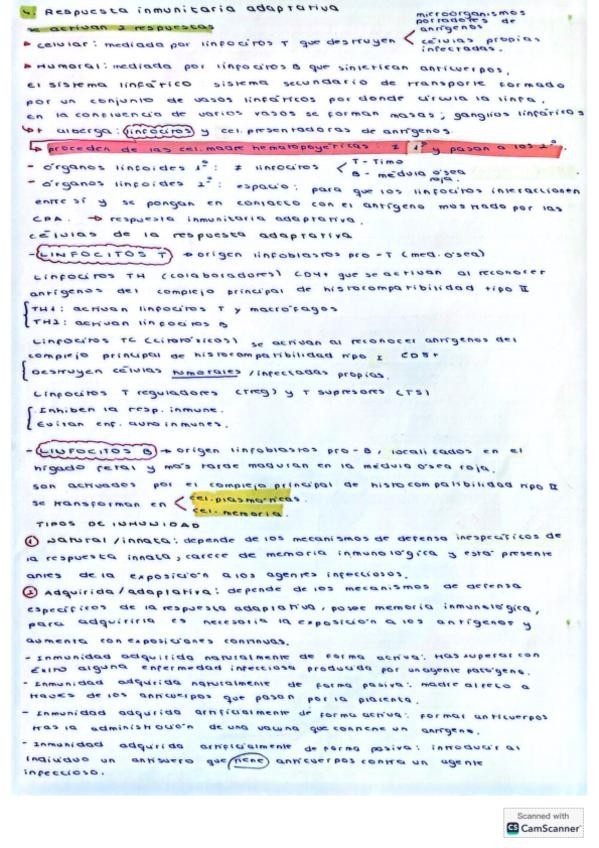 4. Respuesta inmunitaria adaptativa
se activan 2 respuestas
celular: mediada por linfocitos T que destruyen < microorganismos portadores de antígenos
células propias infectadas.
Humoral: mediada por linfocitos B que sintetizan anticuerpos.
El sistema linfático: sistema secundario de transporte formado
por un conjunto de vasos linfáticos por donde circula la linfa.
en la confluencia de varios vasos se forman masas; ganglios linfáticos
↳ + alberga: linfocitos y cel. presentadoras de antígenos.
↳ proceden de las cel. madre hematopoyéticas: 1º y pasan a los 2º.
- órganos linfoides 1º: linfocitos < T - Timo
B - médula ósea roja.
- órganos linfoides 2º: espacio: para que los linfocitos interaccionen
entre sí y se pongan en contacto con el antígeno mostrado por las
CPA. → respuesta inmunitaria adaptativa.
células de la respuesta adaptativa
- LINFOCITOS T → origen linfoblastos pro-T (med. ósea)
Linfocitos TH (colaboradores) CD4+ que se activan al reconocer
antígenos del complejo principal de histocompatibilidad tipo II
TH1: activan linfocitos T y macrófagos
TH2: activan linfocitos B
Linfocitos TC (citotóxicos) se activan al reconocer antígenos del
complejo principal de histocompatibilidad tipo I CD8+
Destruyen células tumorales / infectadas propias.
Linfocitos T reguladores (Treg) y T supresores (TS)
Inhiben la resp. inmune.
Evitan enf. autoinmunes.
- LINFOCITOS B → origen linfoblastos pro-B, localizados en el
hígado fetal y más tarde maduran en la médula ósea roja.
son activados por el complejo principal de histocompatibilidad tipo II
se transforman en < cel. plasmáticas.
cel. memoria.
TIPOS DE INMUNIDAD
① Natural / innata: depende de los mecanismos de defensa inespecíficos de
la respuesta innata, carece de memoria inmunológica y está presente
antes de la exposición a los agentes infecciosos.
② Adquirida / adaptativa: depende de los mecanismos de defensa
específicos de la respuesta adaptativa, posee memoria inmunológica,
para adquirirla es necesaria la exposición a los antígenos y
aumenta con exposiciones continuas.
- Inmunidad adquirida naturalmente de forma activa: tras superar con
éxito alguna enfermedad infecciosa producida por un agente patógeno.
- Inmunidad adquirida naturalmente de forma pasiva: madre al feto a
través de los anticuerpos que pasan por la placenta.
- Inmunidad adquirida artificialmente de forma activa: formar anticuerpos
tras la administración de una vacuna que contiene un antígeno.
- Inmunidad adquirida artificialmente de forma pasiva: introducir al
individuo un antisuero que tiene anticuerpos contra un agente
infeccioso.
Scanned with
CS CamScanner